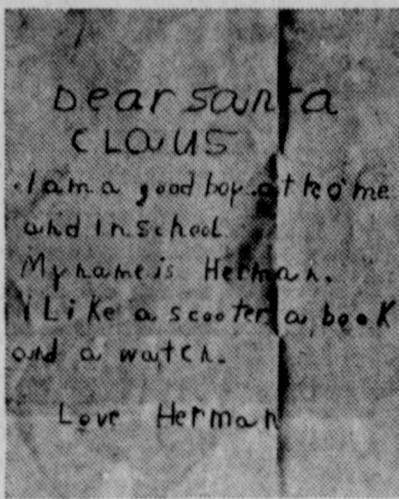 Dear santa
CLaus
I am a good boy at home
and In school
My name is Herman.
i Like a scooter a book
and a watch.
Love Herman